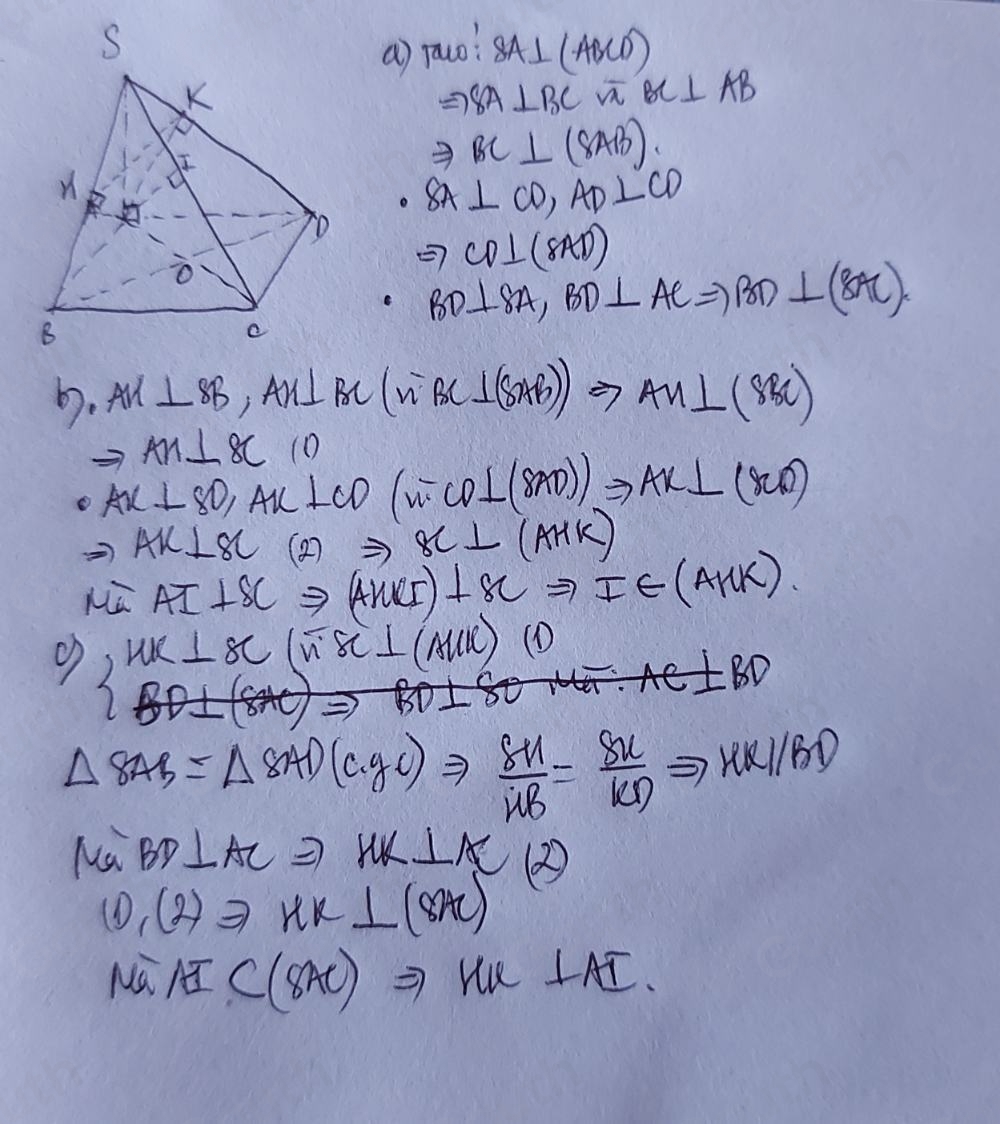 S
K
I
H
D
O
B
C
a) Ta có: SA⊥(ABCD)
⇒ SA⊥BC và BC⊥AB
⇒ BC⊥(SAB).
• SA⊥CD, AD⊥CD
⇒ CD⊥(SAD)
• BD⊥SA, BD⊥AC ⇒ BD⊥(SAC).
b). AH⊥SB, AH⊥BC (vì BC⊥(SAB)) ⇒ AH⊥(SBC)
⇒ AH⊥SC (1)
• AK⊥SD, AK⊥CD (vì CD⊥(SAD)) ⇒ AK⊥(SCD)
⇒ AK⊥SC (2) ⇒ SC⊥(AHK)
Mà AI⊥SC ⇒ (AHKI)⊥SC ⇒ I∈(AHK).
c) { HK⊥SC (vì SC⊥(AHK) (1)
BD⊥(SAC) ⇒ BD⊥SC Mà: AC⊥BD
Δ SAB = Δ SAD (c.g.c) ⇒ SH/HB = SK/KD ⇒ HK//BD
Mà BD⊥AC ⇒ HK⊥AC (2)
(1), (2) ⇒ HK⊥(SAC)
Mà AI⊂(SAC) ⇒ HK⊥AI.